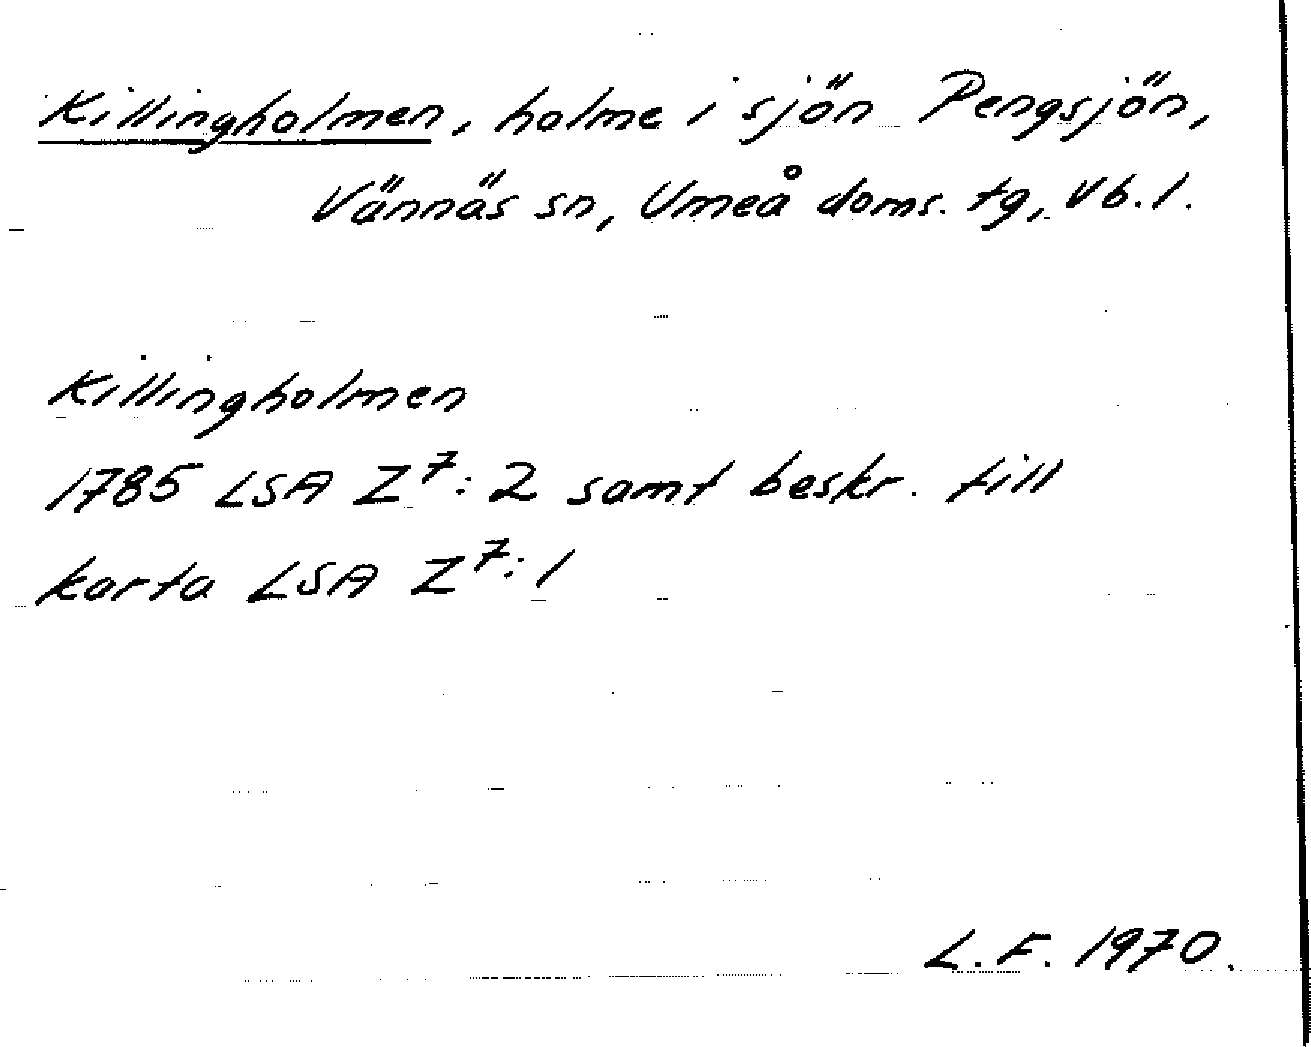 Killingholmen, holme i sjön Pengsjön,
Vännäs sn, Umeå doms. tg, Vb. l.
Killingholmen
1785 LSA Z⁷: 2 samt beskr. till
karta LSA Z⁷: 1
L. F. 1970.